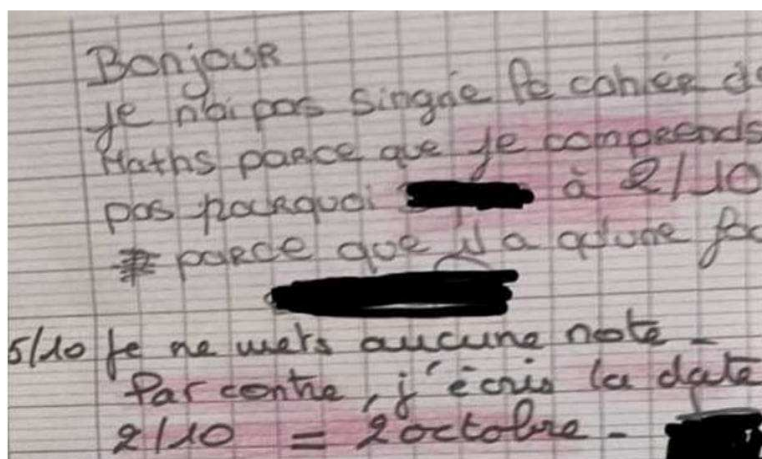 Bonjour
je n'ai pas singnée le cahier de
Maths parce que je comprends
pas pourquoi à 2/10
parce que il a qu'une
5/10 Je ne mets aucune note -
Par contre, j'écris la date
2/10 = 2 octobre -